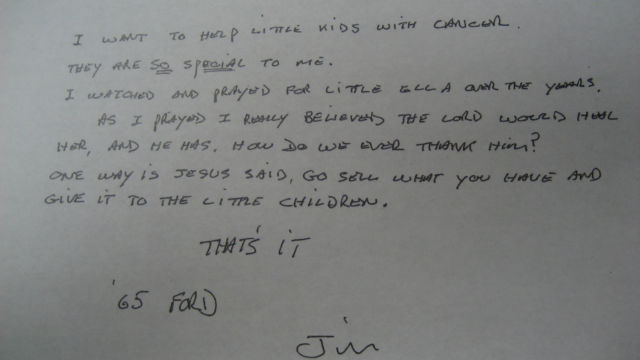 I WANT TO HELP LITTLE KIDS WITH CANCER.
THEY ARE SO SPECIAL TO ME.
I WATCHED AND PRAYED FOR LITTLE ELLA OVER THE YEARS.
AS I PRAYED I REALLY BELIEVED THE LORD WOULD HEAL
HER, AND HE HAS. HOW DO WE EVER THANK HIM?
ONE WAY IS JESUS SAID, GO SELL WHAT YOU HAVE AND
GIVE IT TO THE LITTLE CHILDREN.
THAT'S IT
'65 FORD
Jim